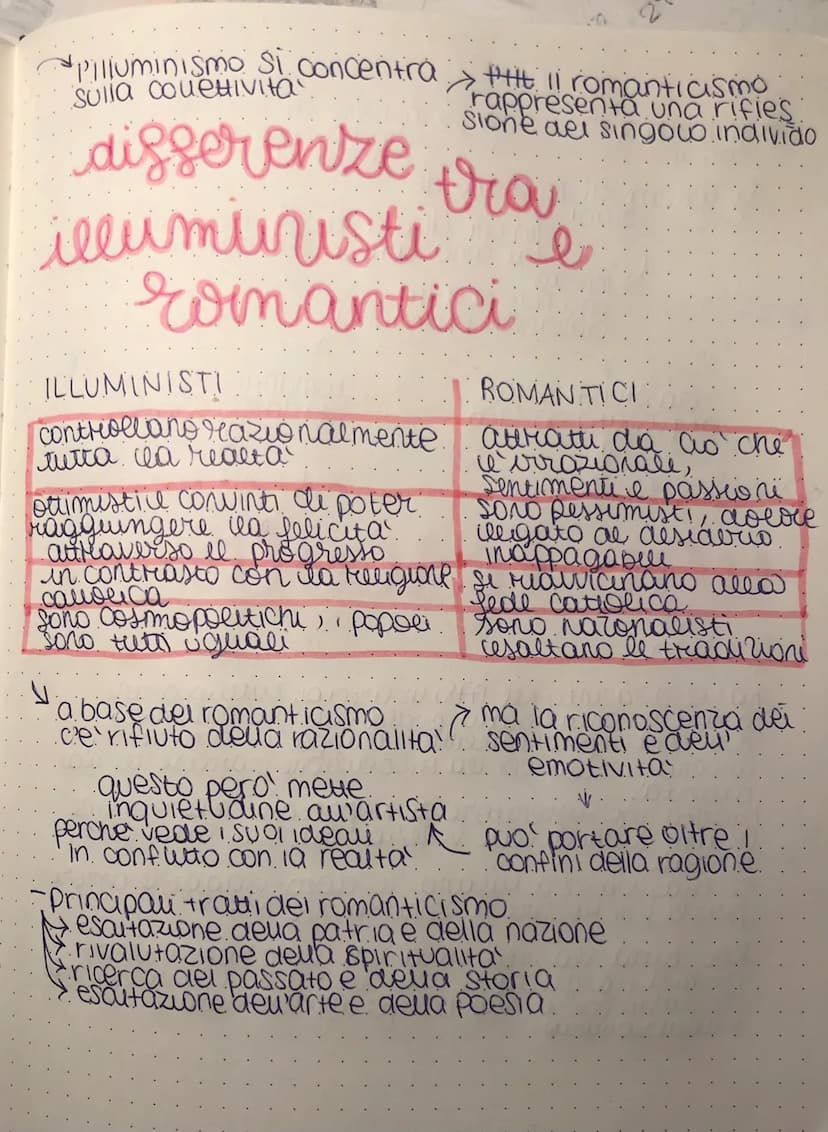 l'illuminismo si concentra
sulla collettività
il romanticismo
rappresenta una rifles
sione del singolo individo
differenze tra
illuministi e
romantici
ILLUMINISTI
controllano razionalmente
tutta la realtà
ottimisti e convinti di poter
raggiungere la felicità
attraverso il progresso
in contrasto con la religione
cattolica
sono cosmopolitichi, i popoli
sono tutti uguali
ROMANTICI
attratti da ciò che
è irrazionale,
sentimenti e passioni
sono pessimisti, dolore
legato al desiderio
inappagabile
si riavvicinano alla
fede cattolica
sono nazonalisti
esaltano le tradizioni
a base del romanticismo
c'è rifiuto della razionalità
ma la riconoscenza dei
sentimenti e dell'
emotività
può portare oltre i
confini della ragione
questo però mette
inquietudine all'artista
perché vede i suoi ideali
in conflitto con la realtà
-principali tratti del romanticismo
esaltazione della patria e della nazione
rivalutazione della spiritualità
ricerca del passato e della storia
esaltazione dell'arte e della poesia